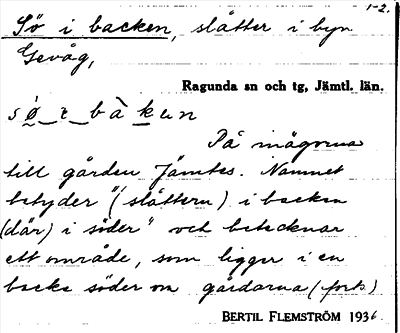 1-2.
Sö i backen, slåtter i byn
Gevåg,
Ragunda sn och tg, Jämtl. län.
sø̣_t_bàkun
På inägorna
till gården Jämtes. Namnet
betyder "(slåttern) i backen
(där) i söder" och betecknar
ett område, som ligger i en
backe söder om gårdarna (forts)
BERTIL FLEMSTRÖM 1936